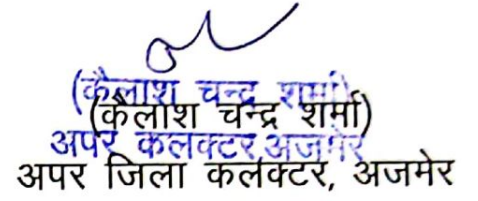 (कैलाश चन्द्र शर्मा)
(कैलाश चन्द्र शर्मा)
अपर कलक्टर, अजमेर
अपर जिला कलेक्टर, अजमेर